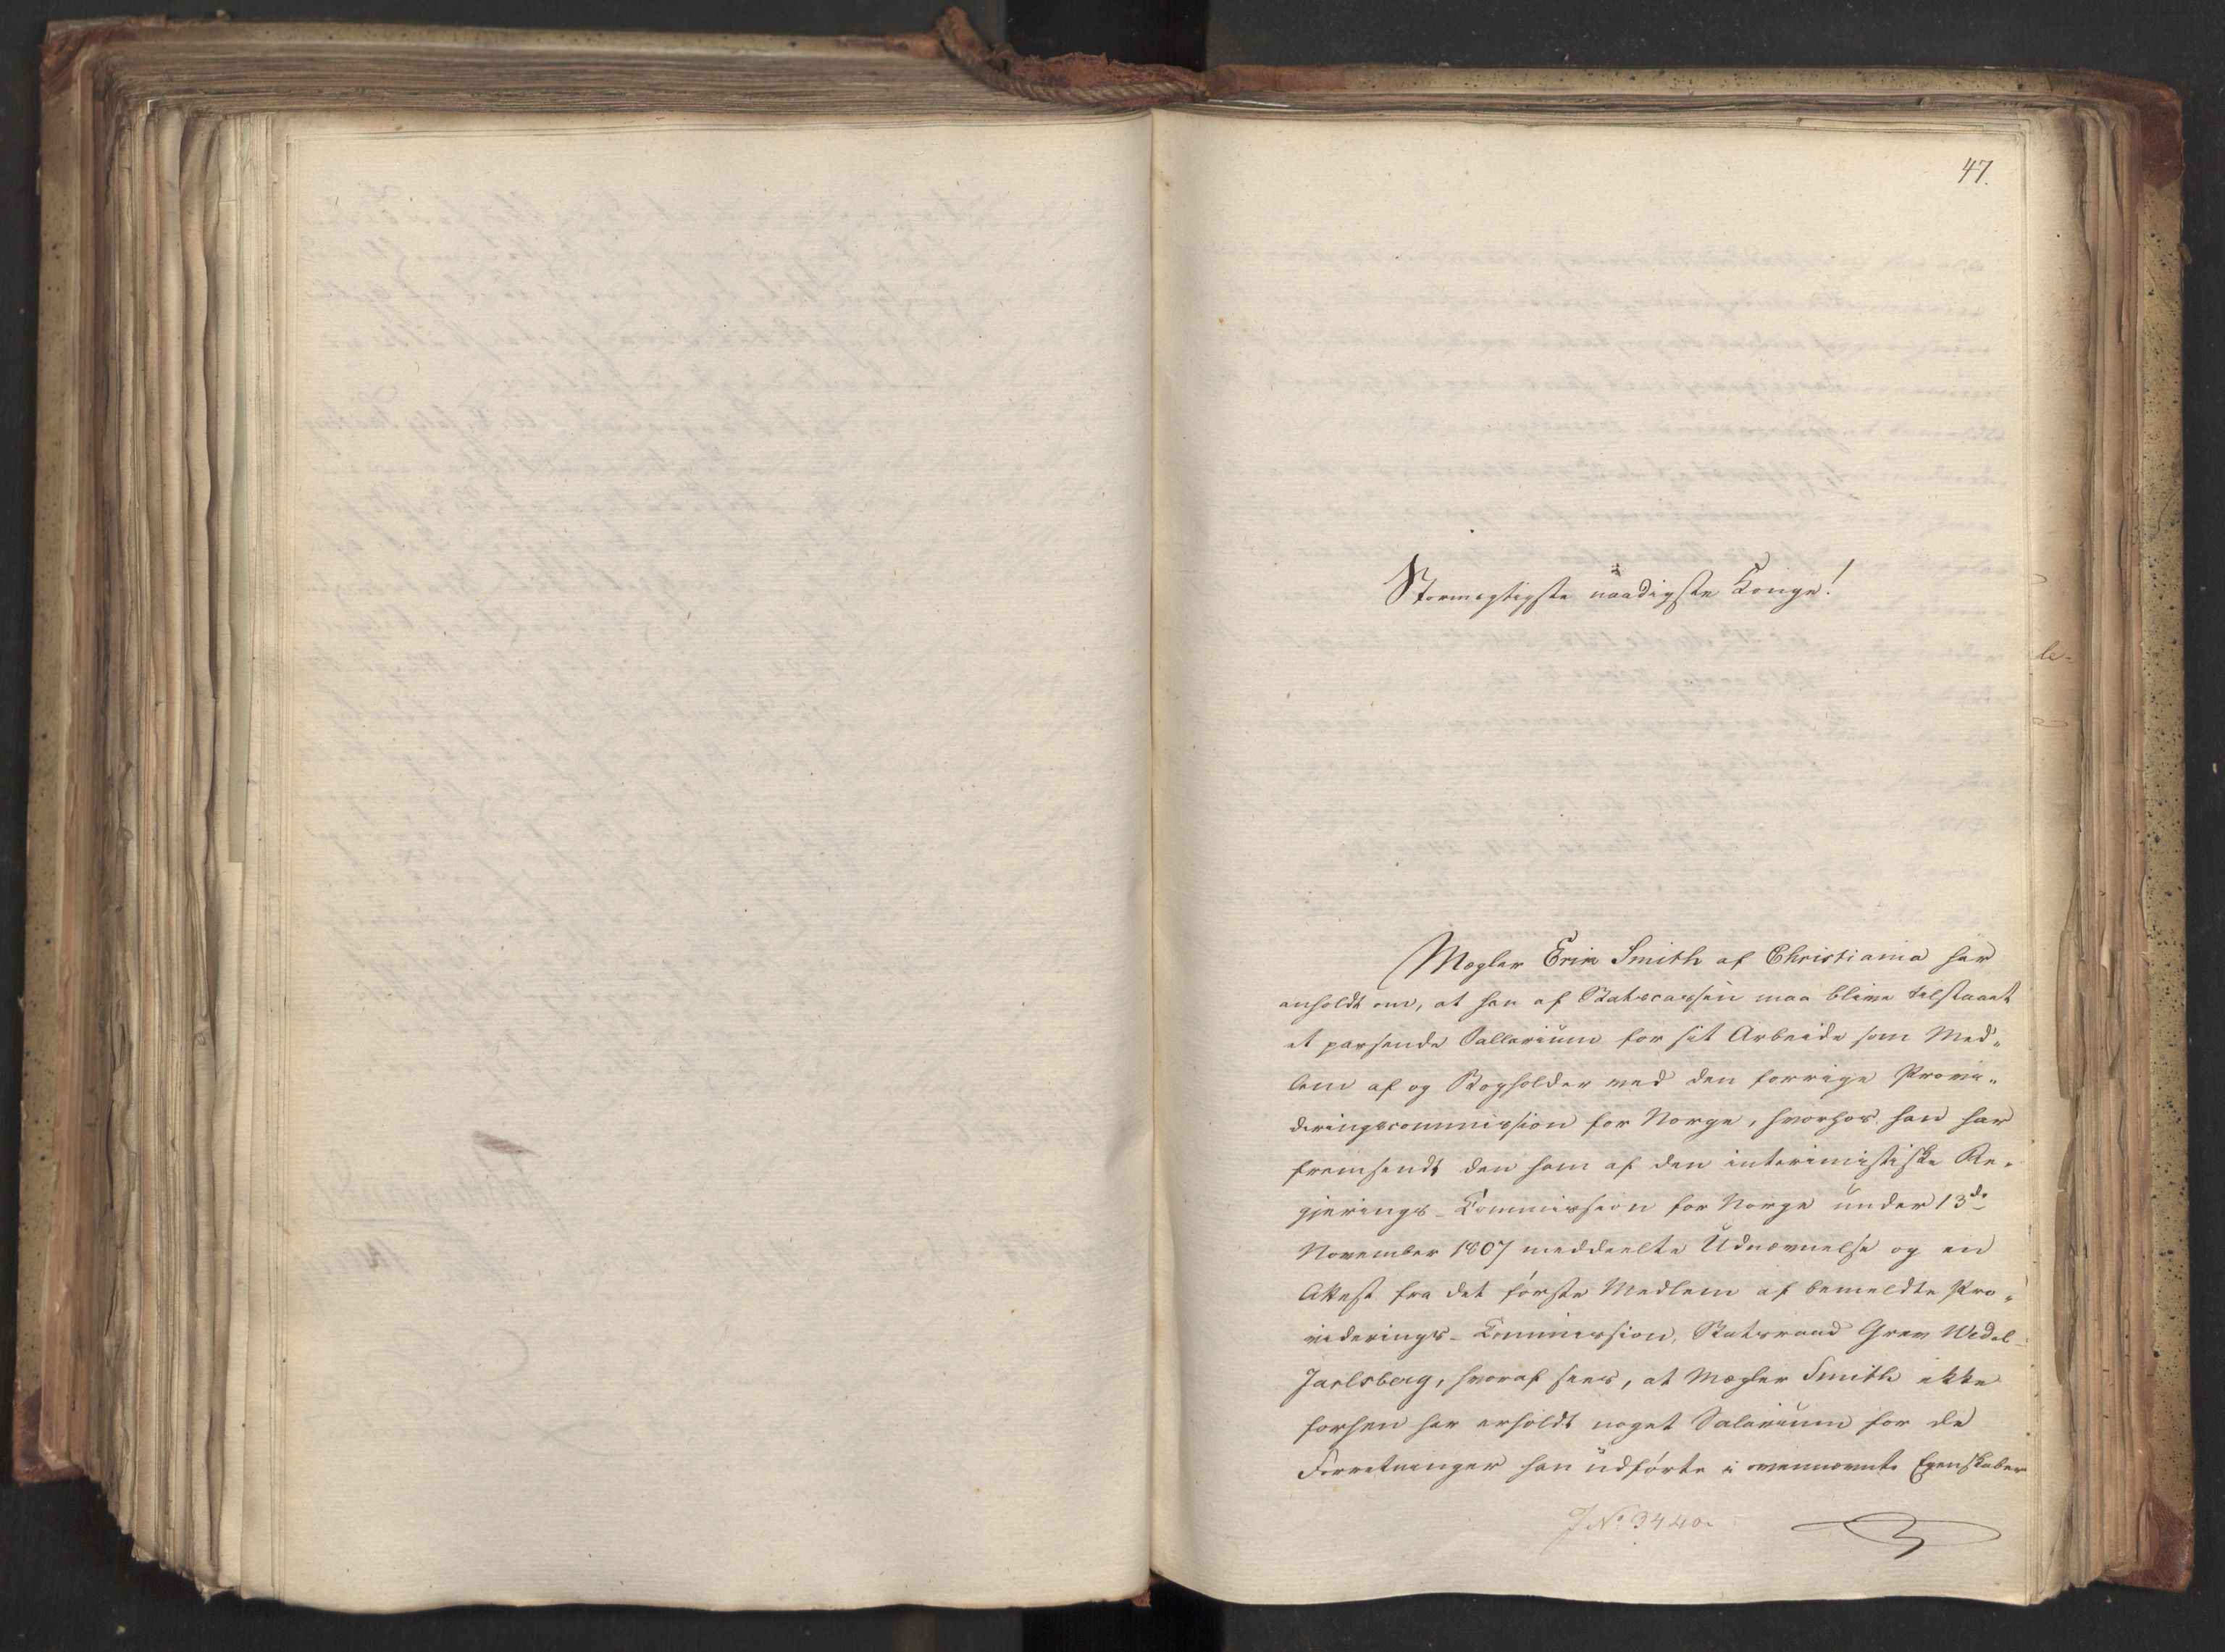 47.
Stormægtigste naadigste Konge!
Mægler Erik Smith af Christiania har
anholdt om, at han af Statscassen maa blive tilstaaet
et passende Sallarium for sit Arbeide som Med„
lem af og Bogholder ved den forrige Provi„
deringscommission for Norge, hvorhos han har
fremsendt den ham af den interimistiske Re„
gjerings-Commission for Norge under 13de
November 1807 meddeelte Udnævnelse og en
Attest fra det første Medlem af bemeldte Pro„
viderings-Commission, Statsraad Grev Wedel
Jarlsberg, hvoraf sees, at Mægler Smith ikke
forhen har erholdt noget Salarium for de
Forretninger han udførte i ovennævnte Egenskaber
J No 3440.